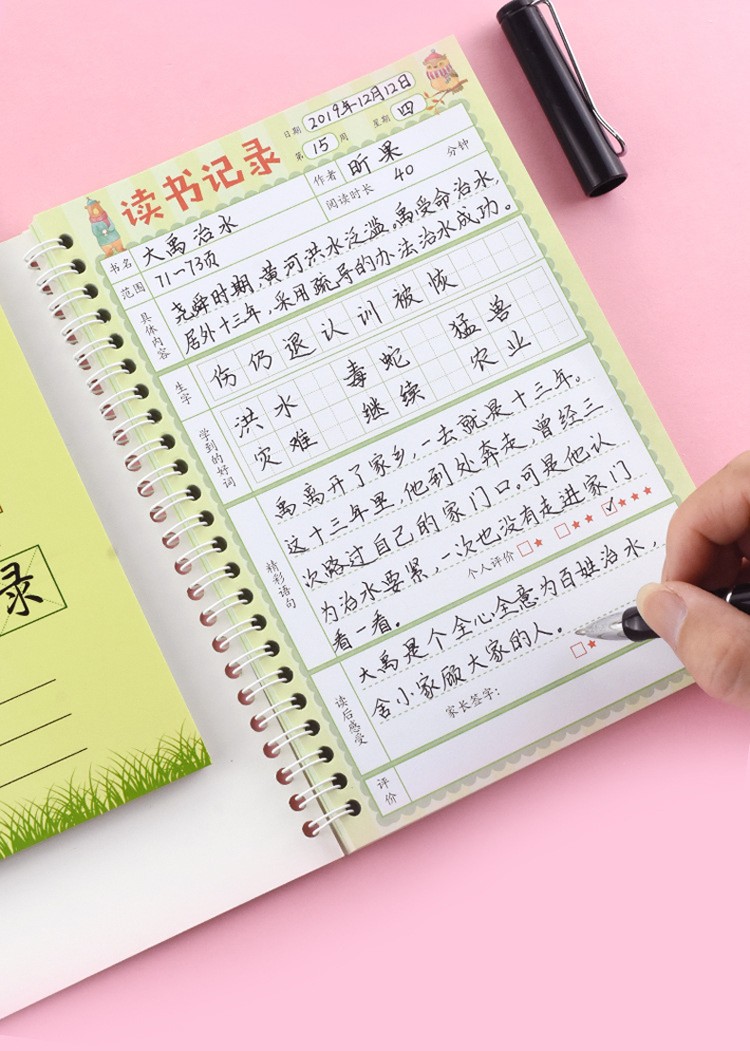 读书记录
日期 2019年12月12日
第 15 周 星期 四
书名 大禹治水 作者 昕果
范围 71-73页 阅读时长 40 分钟
具体内容
尧舜时期,黄河洪水泛滥。禹受命治水,
居外十三年,采用疏导的办法治水成功。
生字
伤仍退认训被恢
学到的好词
洪水 毒蛇 猛兽
灾难 继续 农业
精彩语句
禹离开了家乡,一去就是十三年。
这十三年里,他到处奔走,曾经三
次路过自己的家门口。可是他认
为治水要紧,一次也没有走进家门
看一看。
个人评价
读后感受
大禹是个全心全意为百姓治水,
舍小家顾大家的人。
评价
家长签字:
录